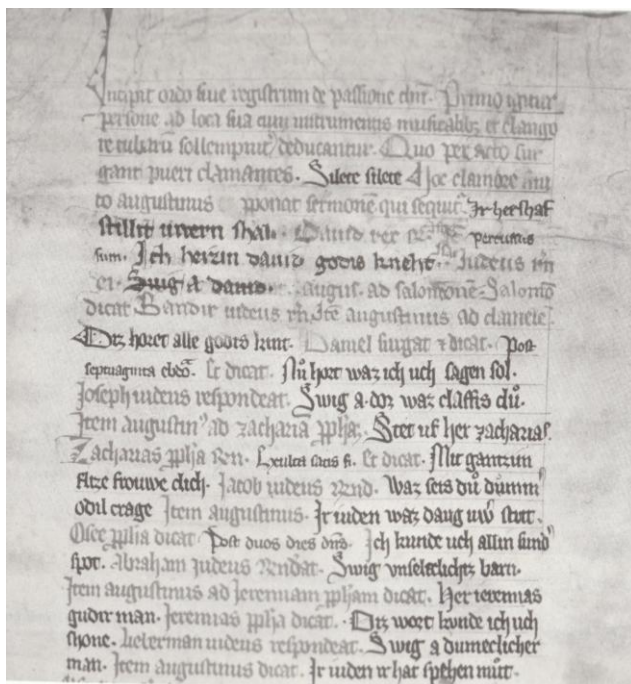 Incipit ordo siue registrum de passione dni. Primo igitur
persone ad loca sua cum instrumentis musicalibz et clango
re tubarum sollempnit' deducantur. Quo peracto sur
gant pueri clamantes. Silete silete Hoc clamore
to augustinus ponat sermonē qui sequit'. Ir herschaf
stillit uwern shal. Dauid percussus
sum. Ich heizin dauid godis kneht. Iudeus
ei. Swig dauid. august. ad salomonē. Salomō
dicat Bandir iudeus augustinus ad
Diz horet alle godis kint. Daniel surgat ⁊ dicat. Post
septuaginta ebdō. Et dicat. Nů hort waz ich uch sagen sol.
Joseph iudens respondeat. Swig a. doz waz claffis dů.
Item augustin' ad zachariā pph̄a. Stet uf her zacharias.
Zacharias pph̄ia Ren. Exulta satis fi. Et dicat. Mit gantzin
flize frouwe dich. Jacob iudeus Rend. Waz seis dů dumm'
odil crage Item augustinus. Ir iuden waz daug uw' strit.
Osee pph̄ia dicat. Post duos dies Ich kunde uch allin sund'
spot. Abraham Judeus Rendat. Swig vnseleclichz barn.
Item augustinus ad Jeremiam pph̄am dicat. Her ieremias
gudir man. Jeremias pph̄ia dicat. Diz wort kunde ich uch
shone. Lieberman iudeus respondeat. Swig a dumeclicher
man. Item augustinus dicat. Ir iuden ir hat spehen můt.